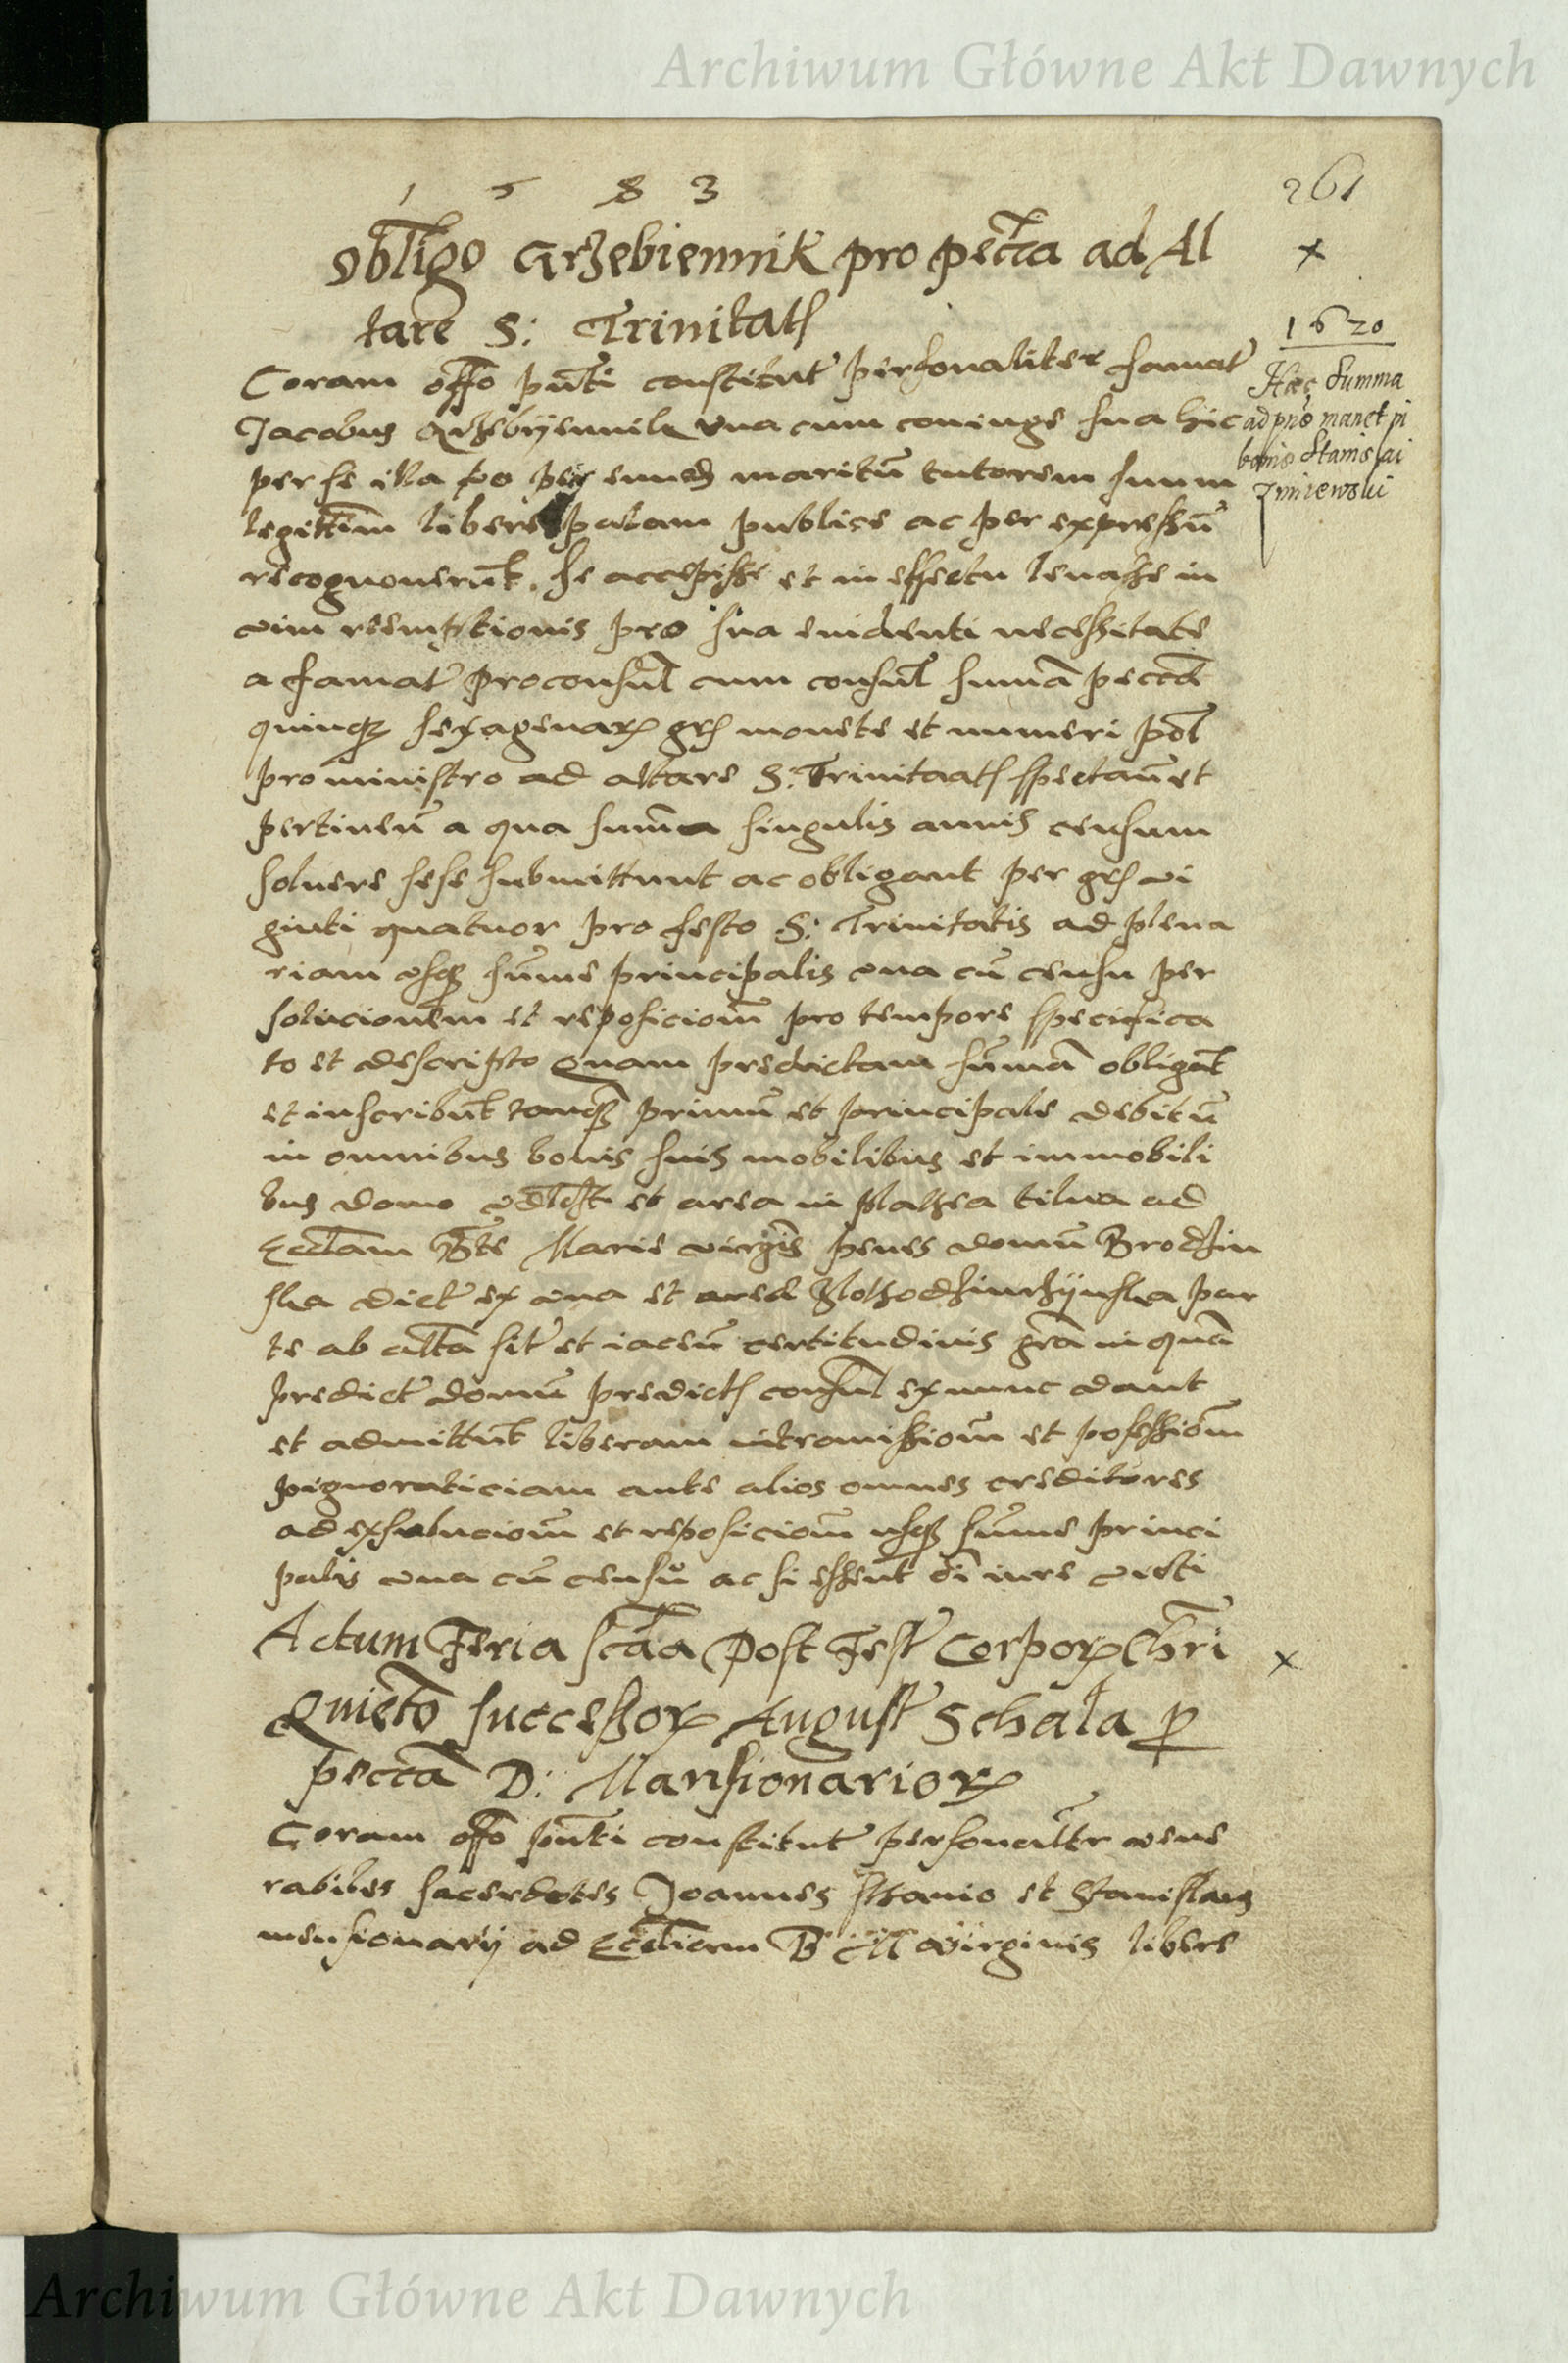 Archiwum Główne Akt Dawnych
1 5 8 3
261
Obligo Grzebiennik pro pecta ad Al
tare S: Trinitatis
Coram offo pnti constitut personaliter famat
Jacobus Grzebyiennik vna cum coniuge sua hic
per se illa vo per eund maritu tutorem suum
legittim libere palam publice ac per expressu
recognouerut se accepisse et in effectu leuasse in
vim reemptionis pro sua euidenti necessitate
a famat proconsul cum consul suma peccta
quinq sexagenar grs monete et numeri pol
pro ministro ad altare S: Trinitaats spectan et
pertinen a qua suma singulis annis censum
soluere sese submittunt ac obligant per grs vi
ginti quatuor pro festo S: Trinitatis ad plena
riam vsq sume principalis vna cu censu per
solucionem et reposiciom pro tempore specifica
to et descripto Quam predictam suma obligat
et inscribut tanq primu et principale debitu
in omnibus bonis suis mobilibus et immobili
bus domo et area in platea ad
Eccliam Bte Marie virgis penes domu Brodzin
ska dict ex vna et area par
te ab alta sit et iacen certitudinis gra in qua
predict domu predicts consul ex nunc dant
et admittut liberam intromissiom et posessiom
pignoraticiam ante alios omnes creditores
ad exsoluciom et reposiciom usq sume princi
palis vna cu censu ac si essent oi iure victi
1620
Haec summa
ad pns manet in
bonis Stanislai
Zmiewski
Actum Feria scda Post Fest Corporis Chri
Quieto successor August Schala p
peccta D: Mansionarior
Coram offo pnti constitut personalitr vene
rabiles sacerdotes Joannes et Stanislaus
mensionarij ad Eccliam B M Virginis libere
Archiwum Główne Akt Dawnych